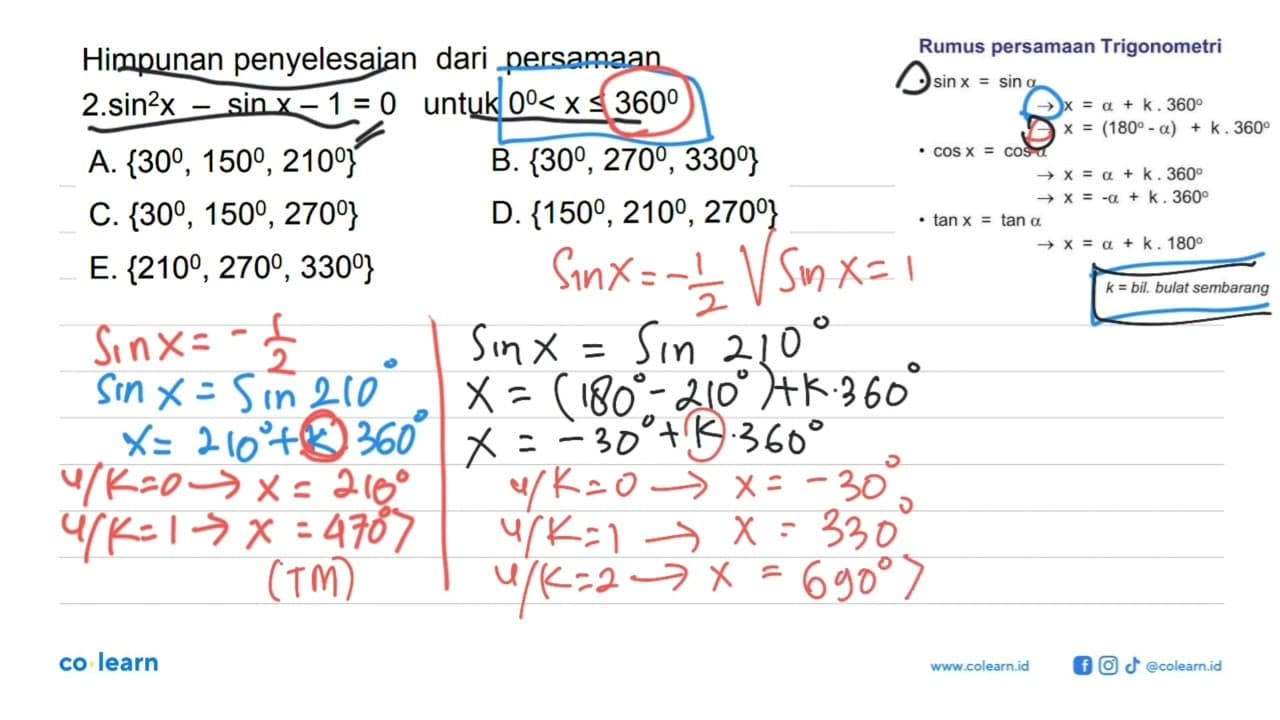 Himpunan penyelesaian dari persamaan
2.sin²x – sin x – 1 = 0 untuk 0⁰< x ≤ 360⁰
A. {30⁰, 150⁰, 210⁰}
B. {30⁰, 270⁰, 330⁰}
C. {30⁰, 150⁰, 270⁰}
D. {150⁰, 210⁰, 270⁰}
E. {210⁰, 270⁰, 330⁰}
Rumus persamaan Trigonometri
• sin x = sin α
→ x = α + k . 360°
→ x = (180° - α) + k . 360°
• cos x = cos α
→ x = α + k . 360°
→ x = -α + k . 360°
• tan x = tan α
→ x = α + k . 180°
k = bil. bulat sembarang
Sin X = -1/2 V Sin X = 1
Sin X = -1/2
Sin X = Sin 210°
X = 210° + K 360°
u/K=0 → X = 210°
u/K=1 → X = 470°>
(TM)
Sin X = Sin 210°
X = (180° - 210°) + K.360°
X = -30° + K.360°
u/K=0 → X = -30°
u/K=1 → X = 330°
u/K=2 → X = 690°>
co learn
www.colearn.id
@colearn.id